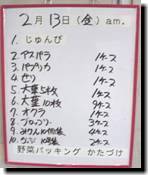 2月13日(金)am.
1. じゅんび
2. アスパラ 1ケース
3. パプリカ 1ケース
4. セリ 1ケース
5. 大葉5枚 1ケース
6. 大葉10枚 9ケース
7. オクラ 1ケース
8. ブロッコリー 3ケース
9. みかん10個袋 4ケース
10. 2ケース
野菜パッキング かたづけ